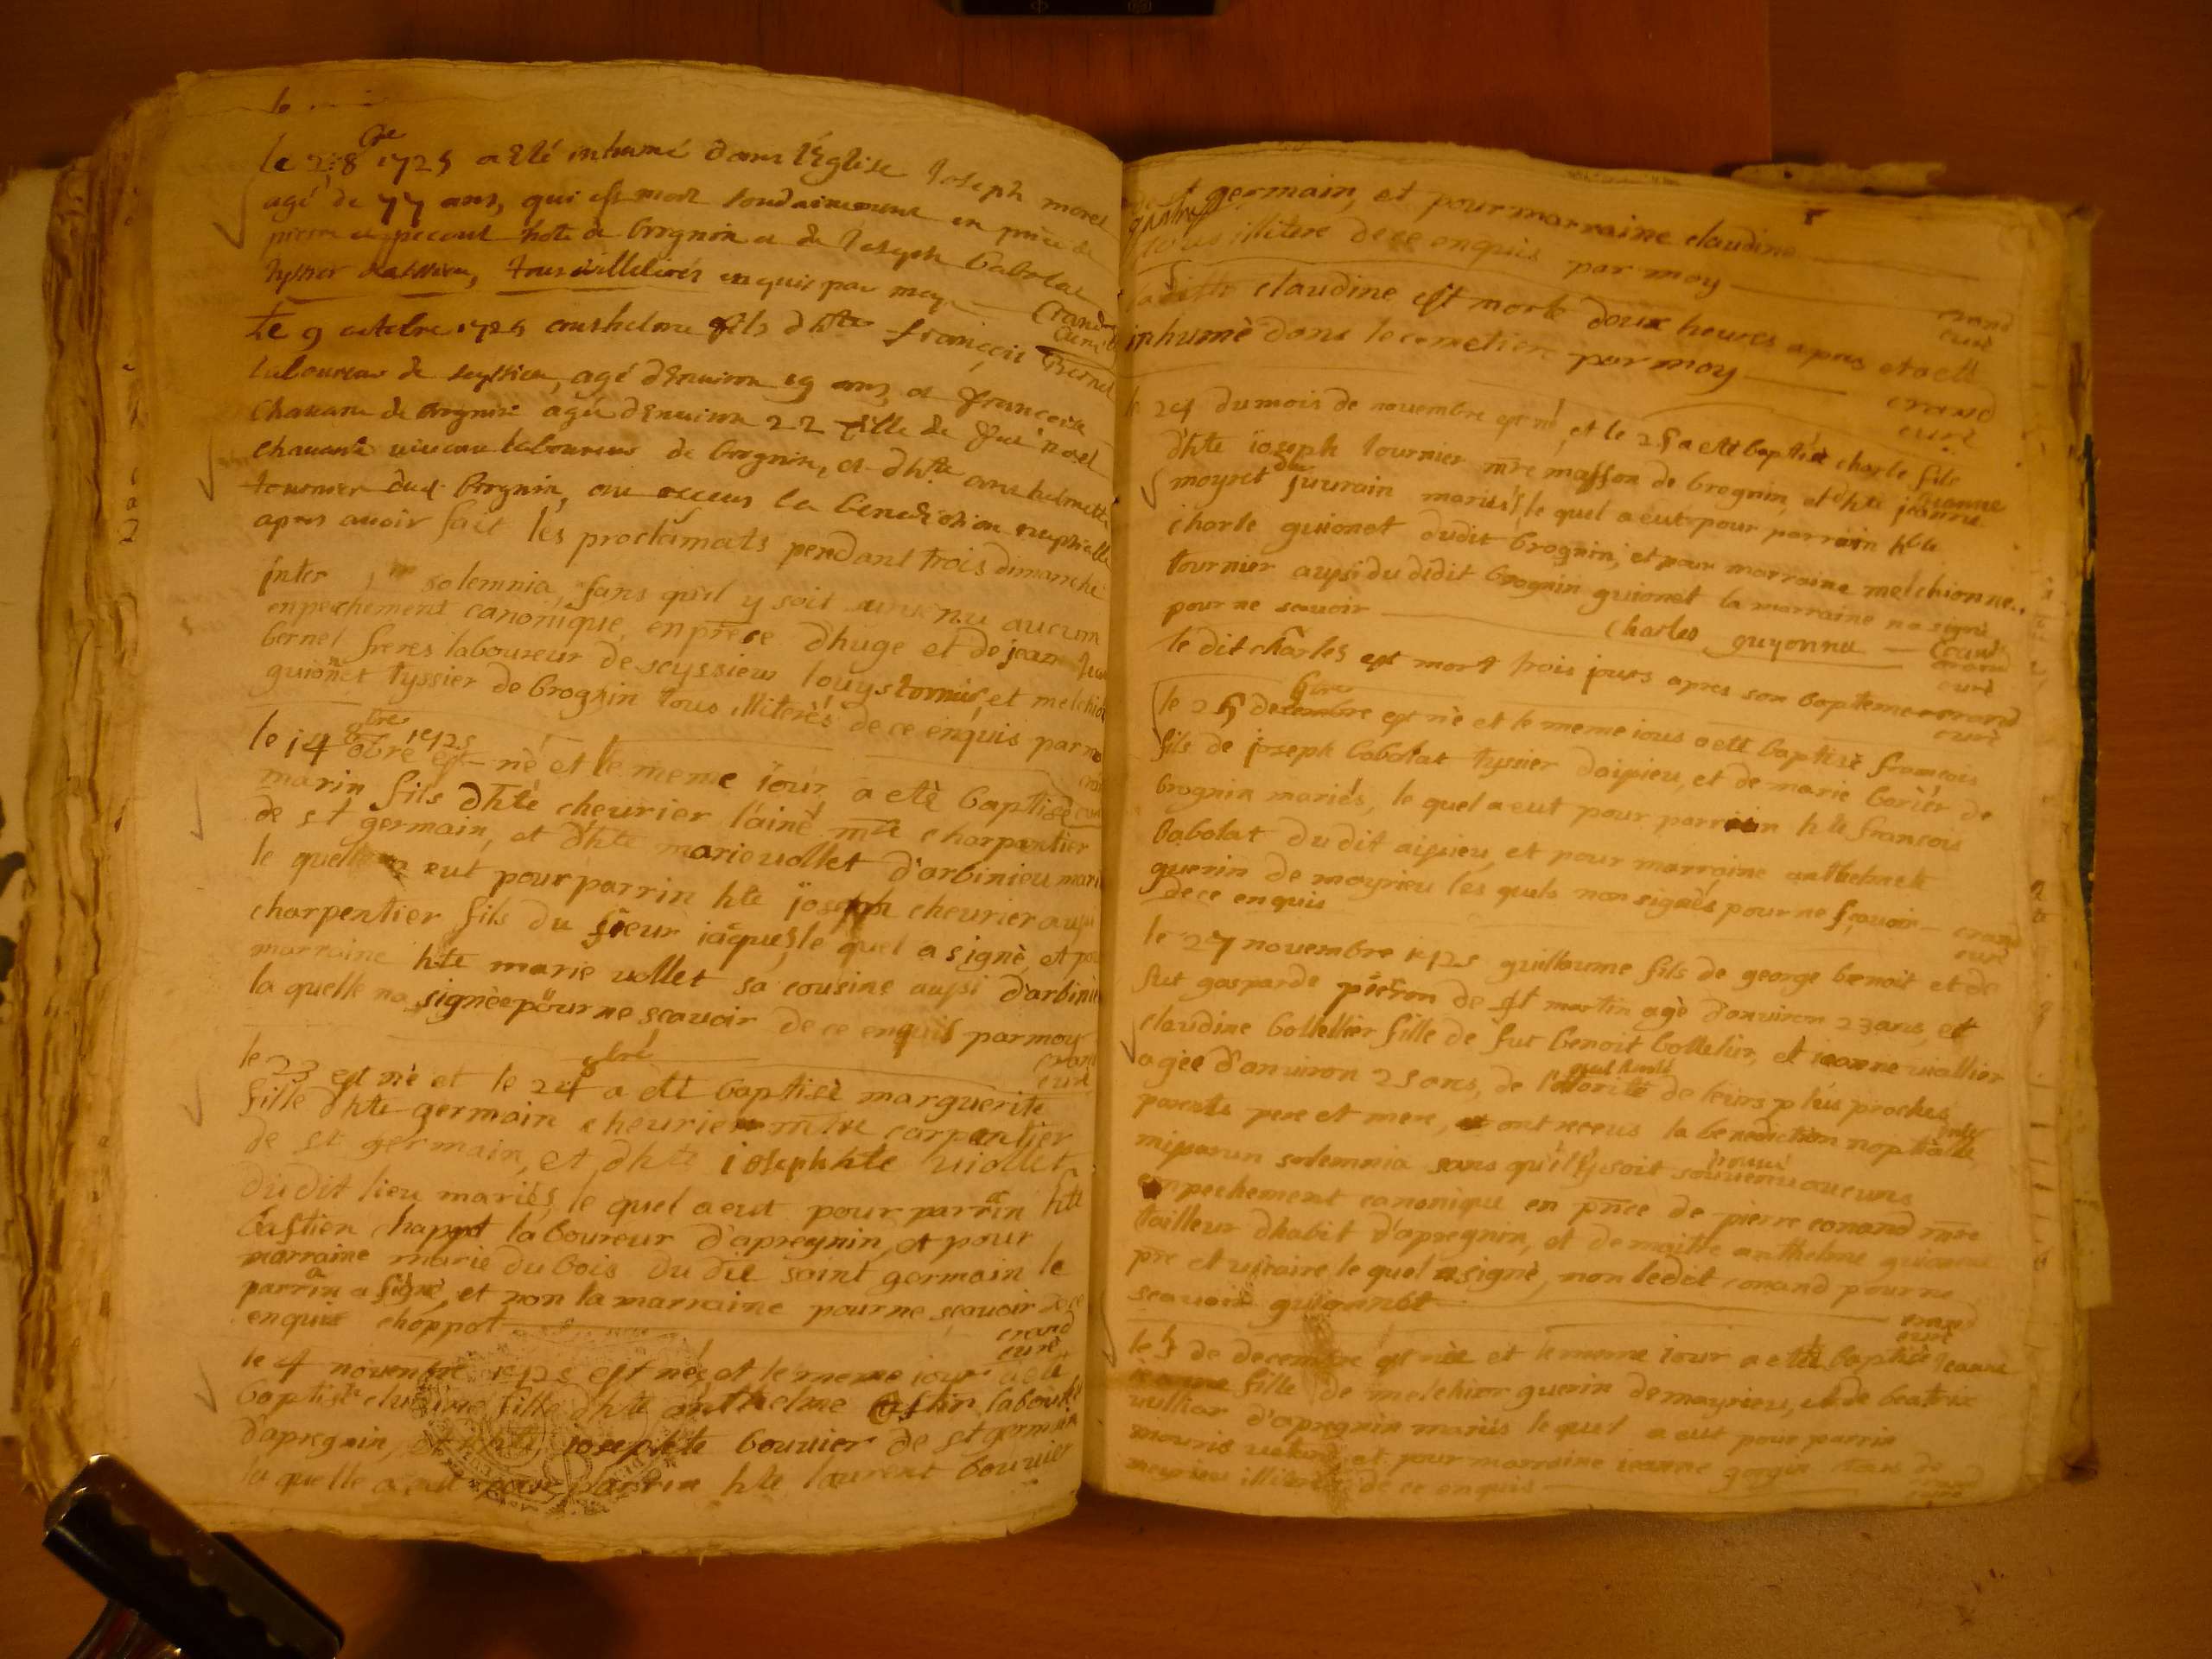 le 2 8bre 1725 a Eté inhumé dans l'Eglise Joseph morel
agé de 77 ans, qui est mort soudainement en pnce de
pierre pecout hote de brognin et de Joseph babolat
tyssier tous illiterés enquis par moy Crand
curé
Le 9 octobre 1725 anthelme fils dhte françois Bernel
laboureur de seyssieu, agé d'Environ 19 ans, et françoise
Chavane de brognin agée d'Environ 22 fille de fut noel
chavane vivant laboureur de brognin, et dhte anthelmette
tournier dud. brognin, ont receus la benediction nuptialle
apres avoir fait les proclamats pendant trois dimanche
inter solemnia, sans qu'il y soit survenu aucun
enpechement canonique, en prece dhuge et de jean
bernel freres laboureur de seyssieu louys tornier, et melchior
guionet tyssier de brognin tous illiterés de ce enquis par moy
le 14 8bre 1725 est né et le meme iour a eté baptisé
marin fils dhte cheurier l'ainé mtre charpantier
de st germain, et dhte marie vollet d'arbinieu mariés
le quel a eut pour parrin hte joseph cheurier aussi
charpentier fils du sieur iâques, le quel a signé, et pour
marraine hte marie vollet sa cousine aussi d'arbinieu
la quelle na signée pour ne scavoir de ce enquis par moy
crand
curé
le 23 est né et le 24 8bre a eté baptisé marguerite
fille dhte germain cheurier mtre carpantier
de st germain, et dhte iosephte viollet
du dit lieu mariés, le quel a eut pour parrain hte
bastien happot laboureur d'apregnin, et pour
marraine marie du bois du dit saint germain le
parrain a signé, et non la marraine pour ne scavoir de ce
enquis choppot
crand
curé
le 4 novembre 1725 est née et le meme iour a eté
baptisée claudine fille dhte anthelme laboureur
d'apregnin, et dhte iosephte bouvier de st germain
la quelle a eut pour parrin hte laurent bouvier
de st germain, et pour marraine claudine
tous illitere de ce enquis par moy
crand
curé
la dite claudine est morte doux heures apres et a eté
inhumé dans le cemetiere par moy
crand
curé
le 24 du mois de novembre est né, et le 25 a eté baptisé charle fils
dhte ioseph tournier mre masson de brognin, et dhte jeanne
moyret du juurain mariés, le quel a eut pour parrain hte
charle guionet dudit brognin, et pour marraine melchionne
tournier aussi du dedit brognin guionet la marraine na signé
pour ne scavoir charles guyonnet Crand
curé
le dit charles est mort trois jours apres son bapteme crand
curé
le 25 decembre 9bre est né et le meme iour a eté baptisé francois
fils de joseph babolat tyssier daipieu, et de marie borier de
brognin mariés, le quel a eut pour parrain hte francois
babolat du dit aipieu, et pour marraine anthelmete
guerin de mayrieu les quels non signés pour ne scavoir
de ce enquis crand
curé
le 27 novembre 1725 guillaume fils de george benoit et de
fut gasparde pieron de st martin agé d'anviron 23 ans, et
claudine bollellier fille de fut benoit bollelier, et ieanne viallier
agée d'anviron 25 ans, de l'otorité de leurs plus proches
parents pere et mere, ont receus la benediction noptialle inter
missarum solemnia sans qu'il y soit souvenu aucuns
empechement canonique en pnce de pierre conand mre
tailleur dhabit d'apregnin, et de maitre anthelme guionnet
pre et vicaire le quel a signé, non ledit conand pour ne
scavoir guigonnet
crand
curé
le 5 de decembre est née et le meme iour a eté baptisé ieanne
ieanne fille de melchior guerin de mayrieu, et de beatrix
vulliar d'apregnin mariés le quel a eut pour parrin
mouris et pour marraine ieanne gorgin tous de
meyrieu illiterés de ce enquis crand
curé